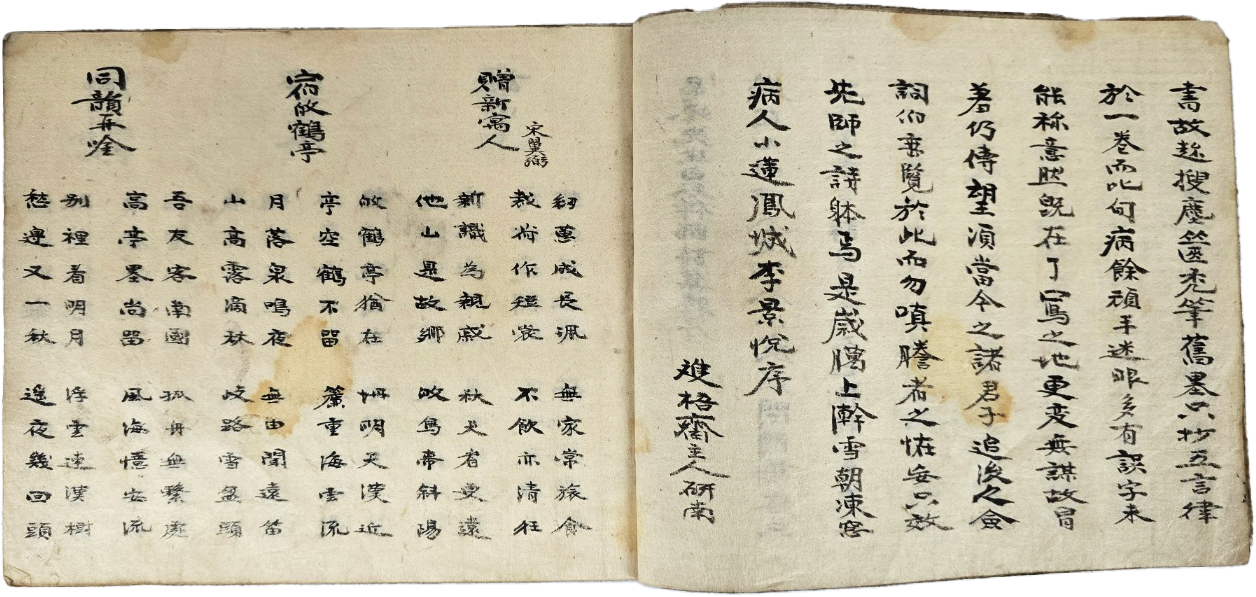 書故趂搜塵篋禿筆舊墨只抄五言律
於一卷而此旬病餘頑手迷眼多有誤字未
能稱意然旣在了寫之地更変無謀故冒
羞仍傳望湏當今之諸君子追後之僉
詞伯乘覽於此而勿嗔謄者之恠妄只效
先師之詩躰焉是歲臈上澣雪朝凍窓
病人小蓮鳳城李景悅序
雙梧齋主人硏南
贈新寓人 宋翼弼
紉蕙成長佩 無家常旅食
裁荷作短裳 不飮亦清狂
新識為親戚 秋天省夢遠
他山是故鄉 放鳥帶斜陽
宿放鶴亭
放鶴亭猶在 明天漢近
亭空鶴不留 簾重海雲流
月落泉鳴夜 無由聞遠笛
山高露滴秋 岐路雪盈頭
同韻再唫
吾友客南國 孤舟無繫處
高亭墨尚留 風海憶安流
別裡看明月 浮雲連漢樹
愁邊又一秋 遙夜幾回頭